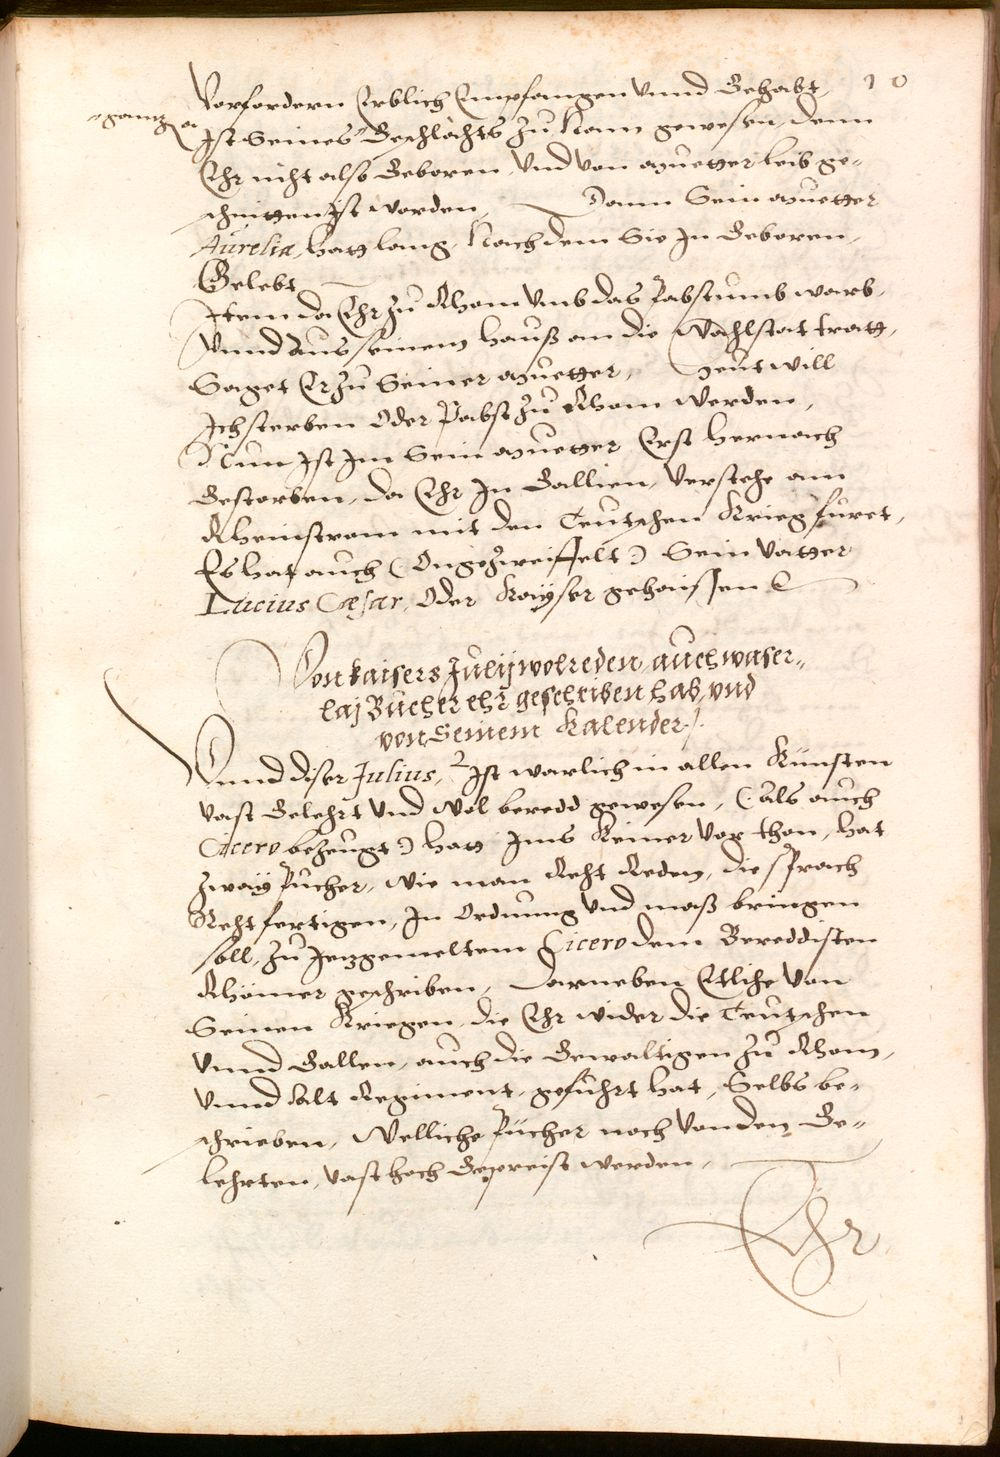 10
Vorfordern Erblich Empfangen Vnnd Gehabt,
gantz
Ist Seines Geschlächts Zu Nam gewesen, denn
Ehr nicht also Geboren, Vnd von muetter leib ge-
schnitten Ist worden, Dann Sein muetter
Aurelia, hatt lang, Nach dem Sie In Geboren,
Gelebt
Item da Ehr Zu Rhom Vmb das Pabstumb warb,
Vnnd Aus seinem hauß an die Wahlstat tratt,
Saget Er Zu Seiner muetter, Heut will
Ich sterben Oder Pabst Zu Rhom Werden,
Nun Ist Im Sein muetter Erst hernach
Gestorben, da Ehr In Gallien, Verstehe am
Rheinstrom mit den Teutschen Krieg furet,
Es hat auch (Ongezweiffelt) Sein Vatter
Lucius Cæsar, Oder Kayser gehaissen
Von kaisers Julij wolreden, auch waser-
laj Bücher ehr geschriben hab, vnd
von Seinem Kalender.
Vnnd diser Julius, Ist warlich in allen Künsten
Vast Gelehrt Vnd Wol beredd gewesen, (Als auch
Cicero bezeugt) hatt Ims Keiner Vor thon, hat
Zway Pücher, Wie man Reht Reden, die sprach
Rehtfertigen, In Ordnung Vnd maß bringen
soll, Zu Jetzgemeltem Cicero dem Bereddisten
Rhömer geschriben, Darneben Etliche Von
Seinen Kriegen, die Ehr wider die Teutschen
Vnnd Gallen, auch die Gewaltigen Zu Rhom,
Vnnd Alt Regiment, geführt hat, Selbs be-
schrieben, Welliche Pücher noch Von den Ge-
lehrten, Vast hoch Gepreist werden,
Ehr